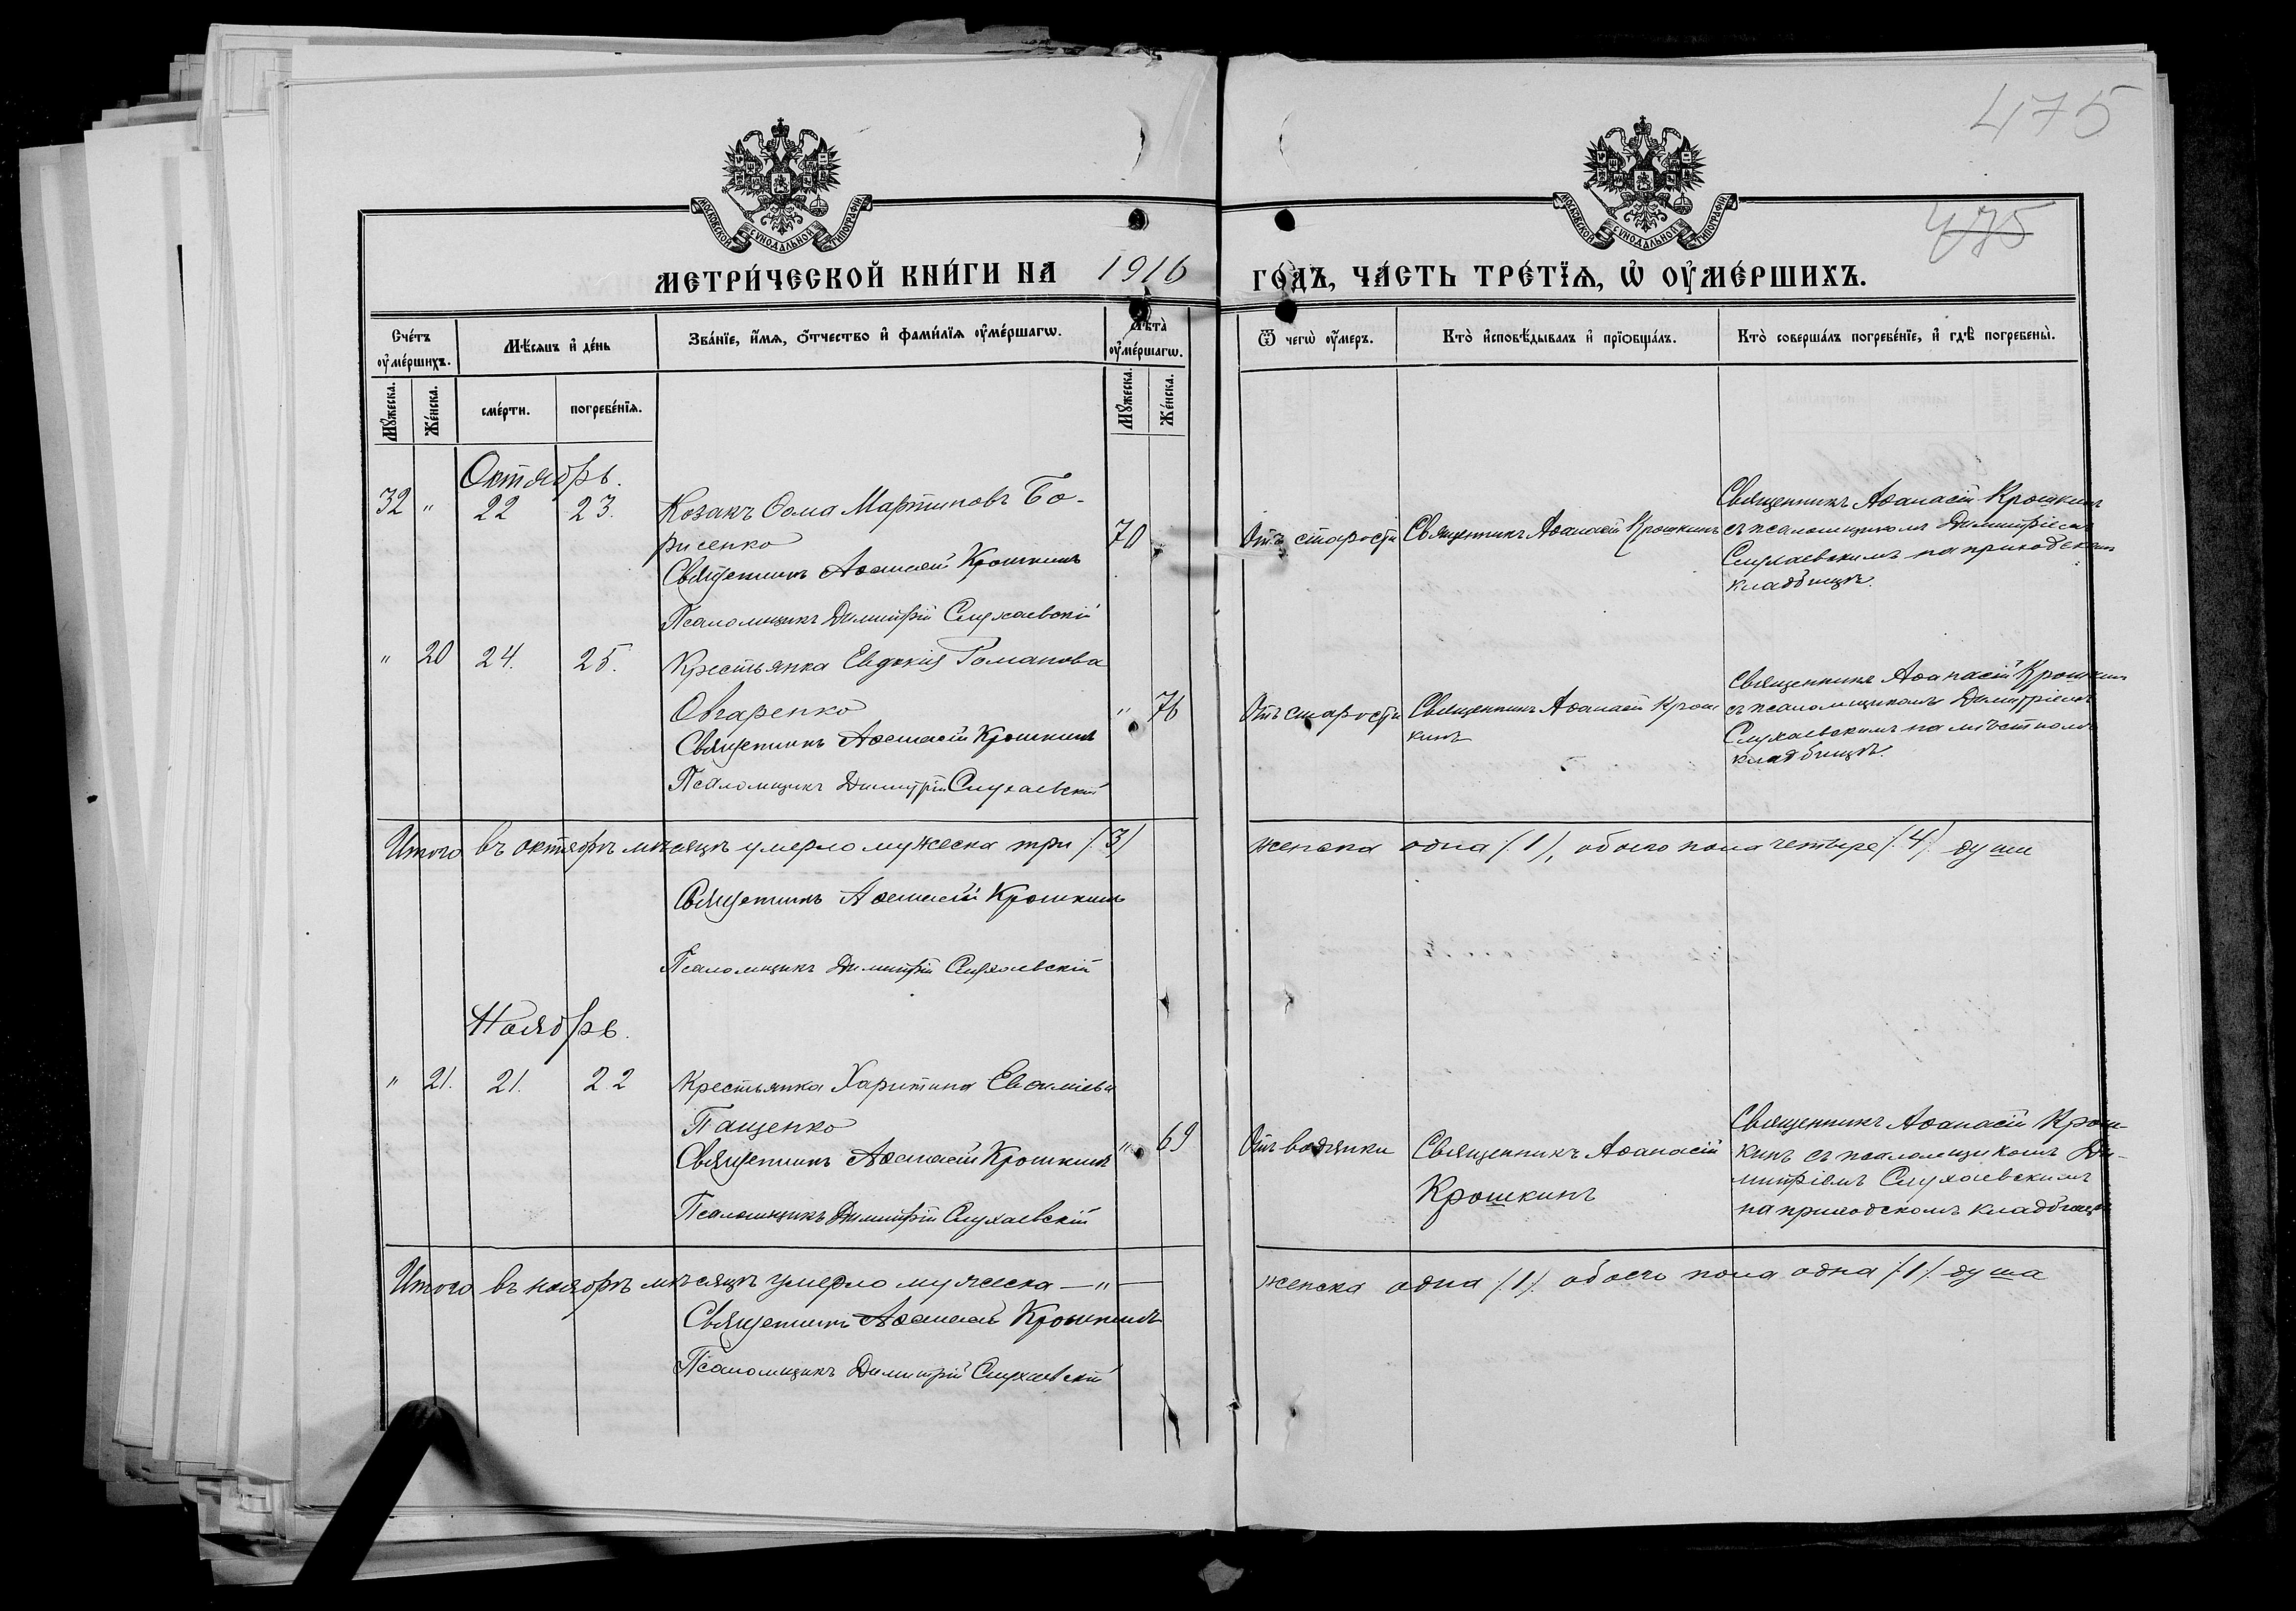 475
475
МОСКОВСКОЙ СѴНОДАЛЬНОЙ ТИПОГРАФИИ
МОСКОВСКОЙ СѴНОДАЛЬНОЙ ТИПОГРАФИИ
МЕТРИ́ЧЕСКОЙ КНИ́ГИ НА 1916 ГО́ДЪ, ЧА́СТЬ ТРЕ́ТІѦ, Ѡ҆ ОУ҆МЕ́РШИХЪ.
Сче́тъ оу҆ме́ршихъ.
Мꙋ́жеска.
Же́нска.
Мѣ́сѧцъ и҆ де́нь
сме́рти.
погребе́нїѧ.
Зва́нїе, и҆́мѧ, ѻ҆́тчество и҆ фами́лїѧ оу҆ме́ршагѡ.
Лѣ́та̀ оу҆ме́ршагѡ.
Мꙋ́жеска.
Же́нска.
Ѿ чегѡ̀ оу҆́меръ.
Кто̀ и҆сповѣ́дывалъ и҆ прїѡбща́лъ.
Кто̀ соверша́лъ погребе́нїе, и҆ гдѣ̀ погребены̀.
Октябрь.
32 " 22 23. Козакъ Ѳома Мартиновъ Бо-
рисенко
70
Священникъ Аѳанасій Крошкинъ
Псаломщикъ Димитрій Слухаевскій
Отъ старости
Священникъ Аѳанасій Крошкинъ
Священникъ Аѳанасій Крошкинъ
съ псаломщикомъ Димитріемъ
Слухаевскимъ на приходском
кладбищѣ.
" 20 24. 25. Крестьянка Евдокія Романова
Овчаренко
" 76
Священникъ Аѳанасій Крошкинъ
Псаломщикъ Димитрій Слухаевскій
Отъ старости
Священникъ Аѳанасій Крош
кинъ
Священникъ Аѳанасій Крошкинъ
съ псаломщикомъ Димитріемъ
Слухаевскимъ на мѣстномъ
кладбищѣ.
Итого въ октябрѣ мѣсяцѣ умерло мужеска три /3/ женска одна /.1/, обоего пола четыре /.4/. души
Священникъ Аѳанасій Крошкинъ
Псаломщикъ Димитрій Слухаевскій
Ноябрь.
" 21. 21. 22 Крестьянка Харитина Евѳиміева
Пащенко
" 69
Священникъ Аѳанасій Крошкинъ
Псаломщикъ Димитрій Слухаевскій
Отъ водянки
Священникъ Аѳанасій
Крошкинъ
Священникъ Аѳанасій Крош-
кинъ съ псаломщикомъ Ди-
митріемъ Слухаевскимъ
на приходскомъ кладбищѣ
Итого въ ноябрѣ мѣсяцѣ умерло мужеска — " — женска одна /.1/. обоего пола одна /.1/. душа
Священникъ Аѳанасій Крошкинъ
Псаломщикъ Димитрій Слухаевскій